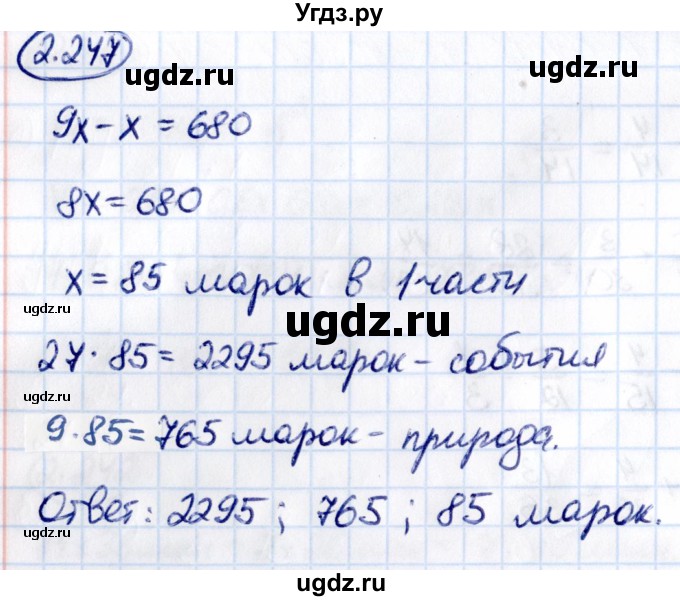 Угдз.ру
2.247
ugdz.ru
ugdz.ru
9x - x = 680
8x = 680
x = 85 марок в 1 части
ugdz.ru
ugdz.ru
27 · 85 = 2295 марок - события
ugdz.ru
9 · 85 = 765 марок - природа.
Ответ: 2295; 765; 85 марок.
ugdz.ru
ugdz.ru